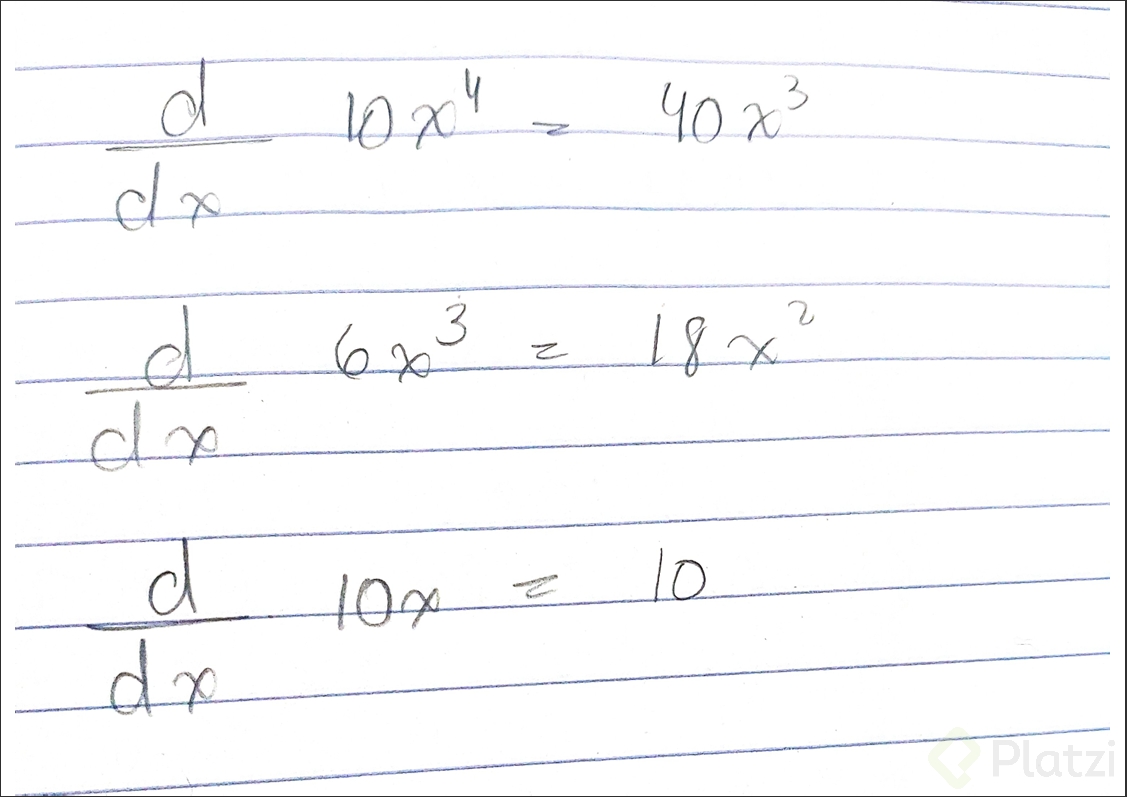 d/dx 10x⁴ = 40x³
d/dx 6x³ = 18x²
d/dx 10x = 10
Platzi